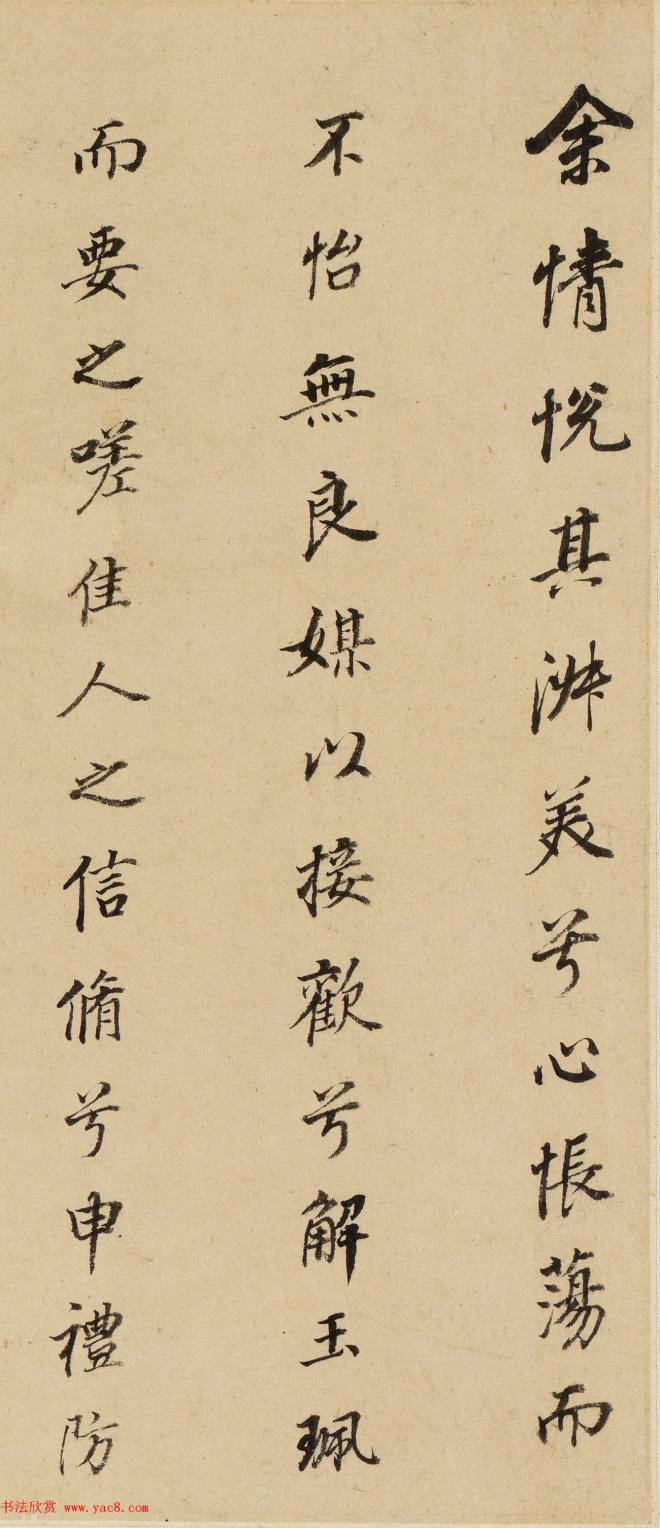 余情悅其淑美兮心悵蕩而
不怡無良媒以接歡兮解玉珮
而要之嗟佳人之信脩兮申禮防
书法欣赏 www.yac8.com